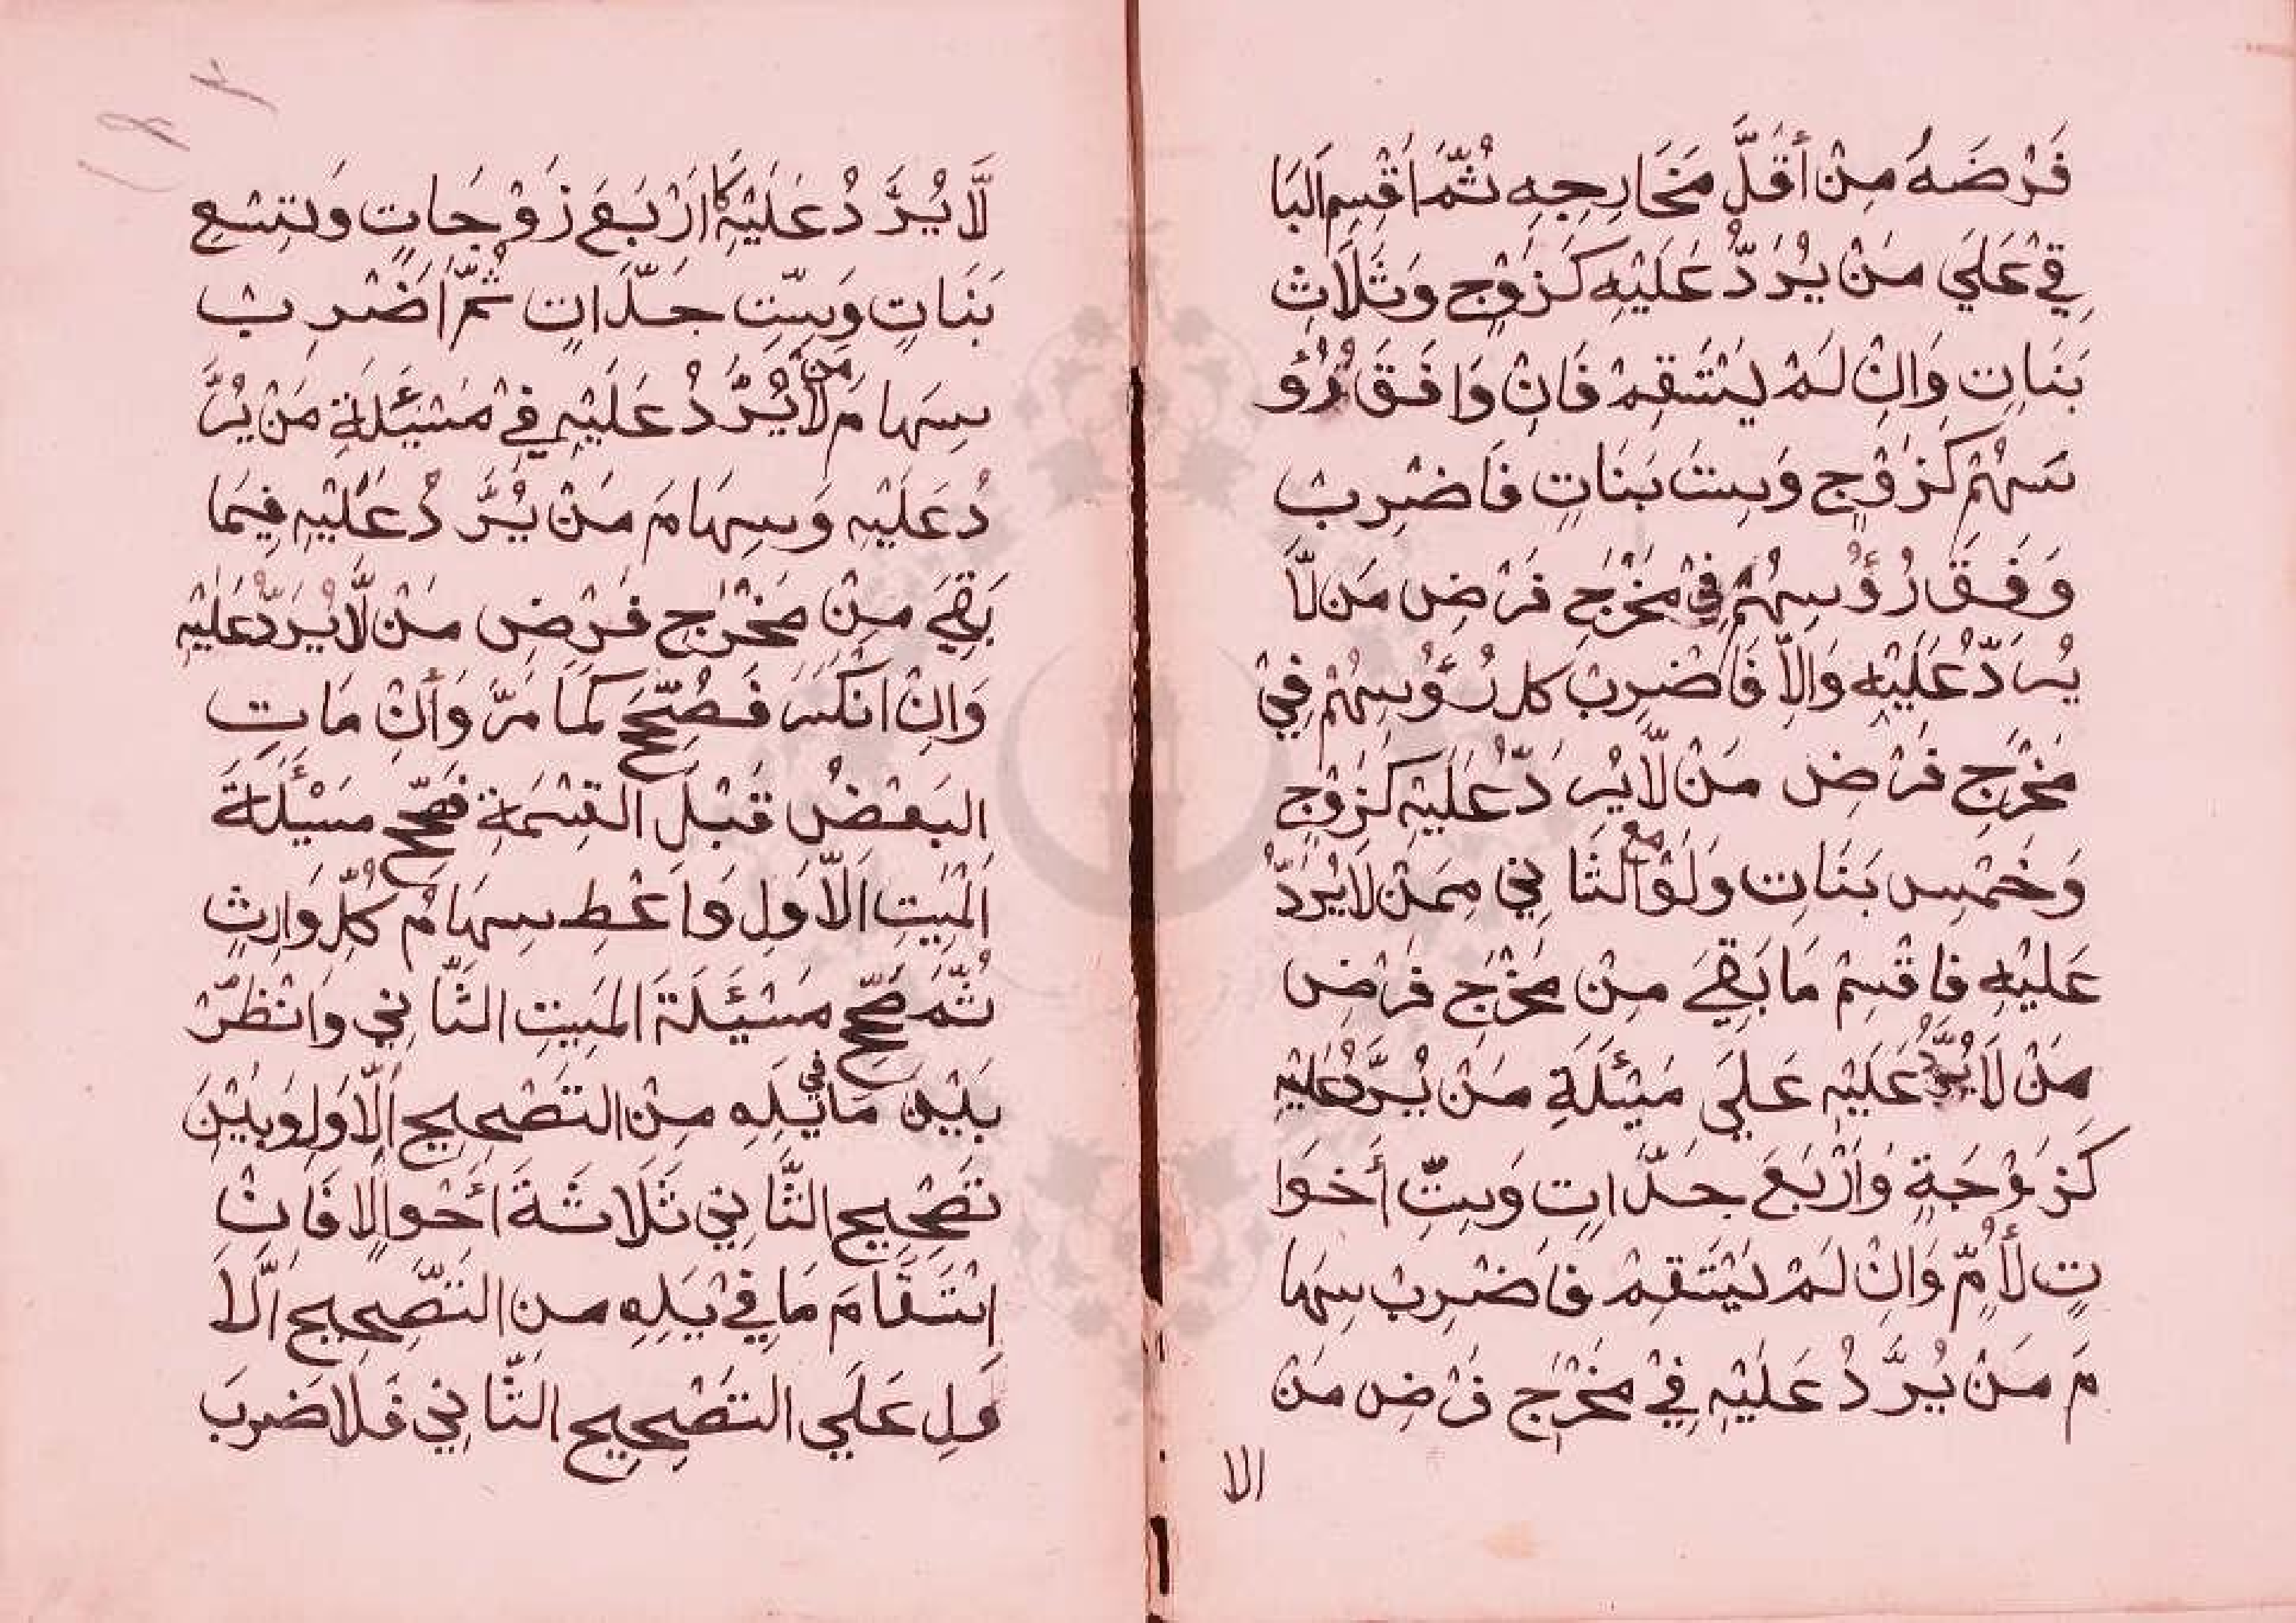 فَرْضَهُ مِنْ أَقَلَّ مَخَارِجِهِ ثُمَّ اَقْسِمِ البَا
قِي عَلَي مَنْ يُرَدُّ عَلَيْهِ كَزَوْجٍ وَثَلَاثِ
بَنَاتٍ وَاِنْ لَمْ يَسْتَقِمْ فَاِنْ وَافَقَ رُؤُ
سَهُمْ كَزَوْجٍ وَسِتَ بَنَاتٍ فَاضْرِبْ
وَفَقَ رُؤُسِهُمْ فِيْ مَخْرَجِ فَرَضِ مَن لَّا
يُرَدُّ عَلَيْهِ وَاِلَّا فَاضْرِبْ كل رُؤُسِهُمْ فِيْ
مَخْرَجِ فَرْضِ مَنْ لَّا يُرَدُّ عَلَيْهِ كَزَوْجٍ
وَخَمْسِ بَنَاتِ وَلَوْ مع الثَانِي مِمَنْ لَا يُرَدُّ
عَلَيْهِ فَاقْسِمْ مَا بَقِيَ مِنْ مَخْرَجِ فَرْضِ
مَنْ لَا يُرَدُّ عَلَيْهِ عَلَيَ مَسْئَلَةِ مَنْ يُرَّدُ عَلَيْهِ
كَزَوْجَةٍ وَاَرْبَعَ جَدَّاتٍ وَسِتِّ أَخَوَا
تٍ لأُمٍّ وَاِنْ لَمْ يَسْتَقِمْ فَاضْرِبْ سِهَا
مَ مَنْ يُرَّدُ عَلَيْهِ فِيْ مَخْرَجِ فَرْضِ مَنْ
الا
لَّا يُرَّدُ عَلَيْهِ كَاَرْبَعَ زَوْجَاتٍ وَتِسْعِ
بَنَاتٍ وَسِتِّ جَدَّاتٍ ثُمَّ اَضْرِبْ
سِهَامَ مَنْ لَا يُرَّدُ عَلَيْهِ فِيْ مَسْئَلَةِ مَنْ يُرَّ
دُ عَلَيْهِ وَسِهَامَ مَنْ يُرَّدُ عَلَيْهِ فِيْمَا
بَقِيَ مِنْ مَخْرَجِ فَرْضِ مَنْ لَّا يُرَدُّ عَلَيْهِ
وَاِنْ انْكَسَرَ فَصُحِّحَ كَمَا مَرَّ وَأَنِ مَاتِ
البَعْضُ قَبْلَ القِسْمَةِ فَصَحِّحْ مَسْئَلَةَ
الْمَيِتِ الْاَّوَلِ وَاعْطِ سِهَامُ كُلِّ وَارِثٍ
ثُمَّ صَحِّحْ مَسْئَلَةَ المَيِتِ الثَّانِي وَانْظُرْ
بَيْنَ مَا فِي يَدِهِ مِنْ التَصْحِيحِ الْاَّوَلِ وَبَيْنَ
تَصْحِيحِ الثَّانِي ثَلَاثَةَ اَحْوالٍ فَاِنْ
اِسْتَقَامَ مَا فِيْ يَدِهِ مِنِ التَّصْحِيحِ الَّا
وَلِ عَلَي التَصْحِيحِ الثَّانِي فَلَا ضَربَ